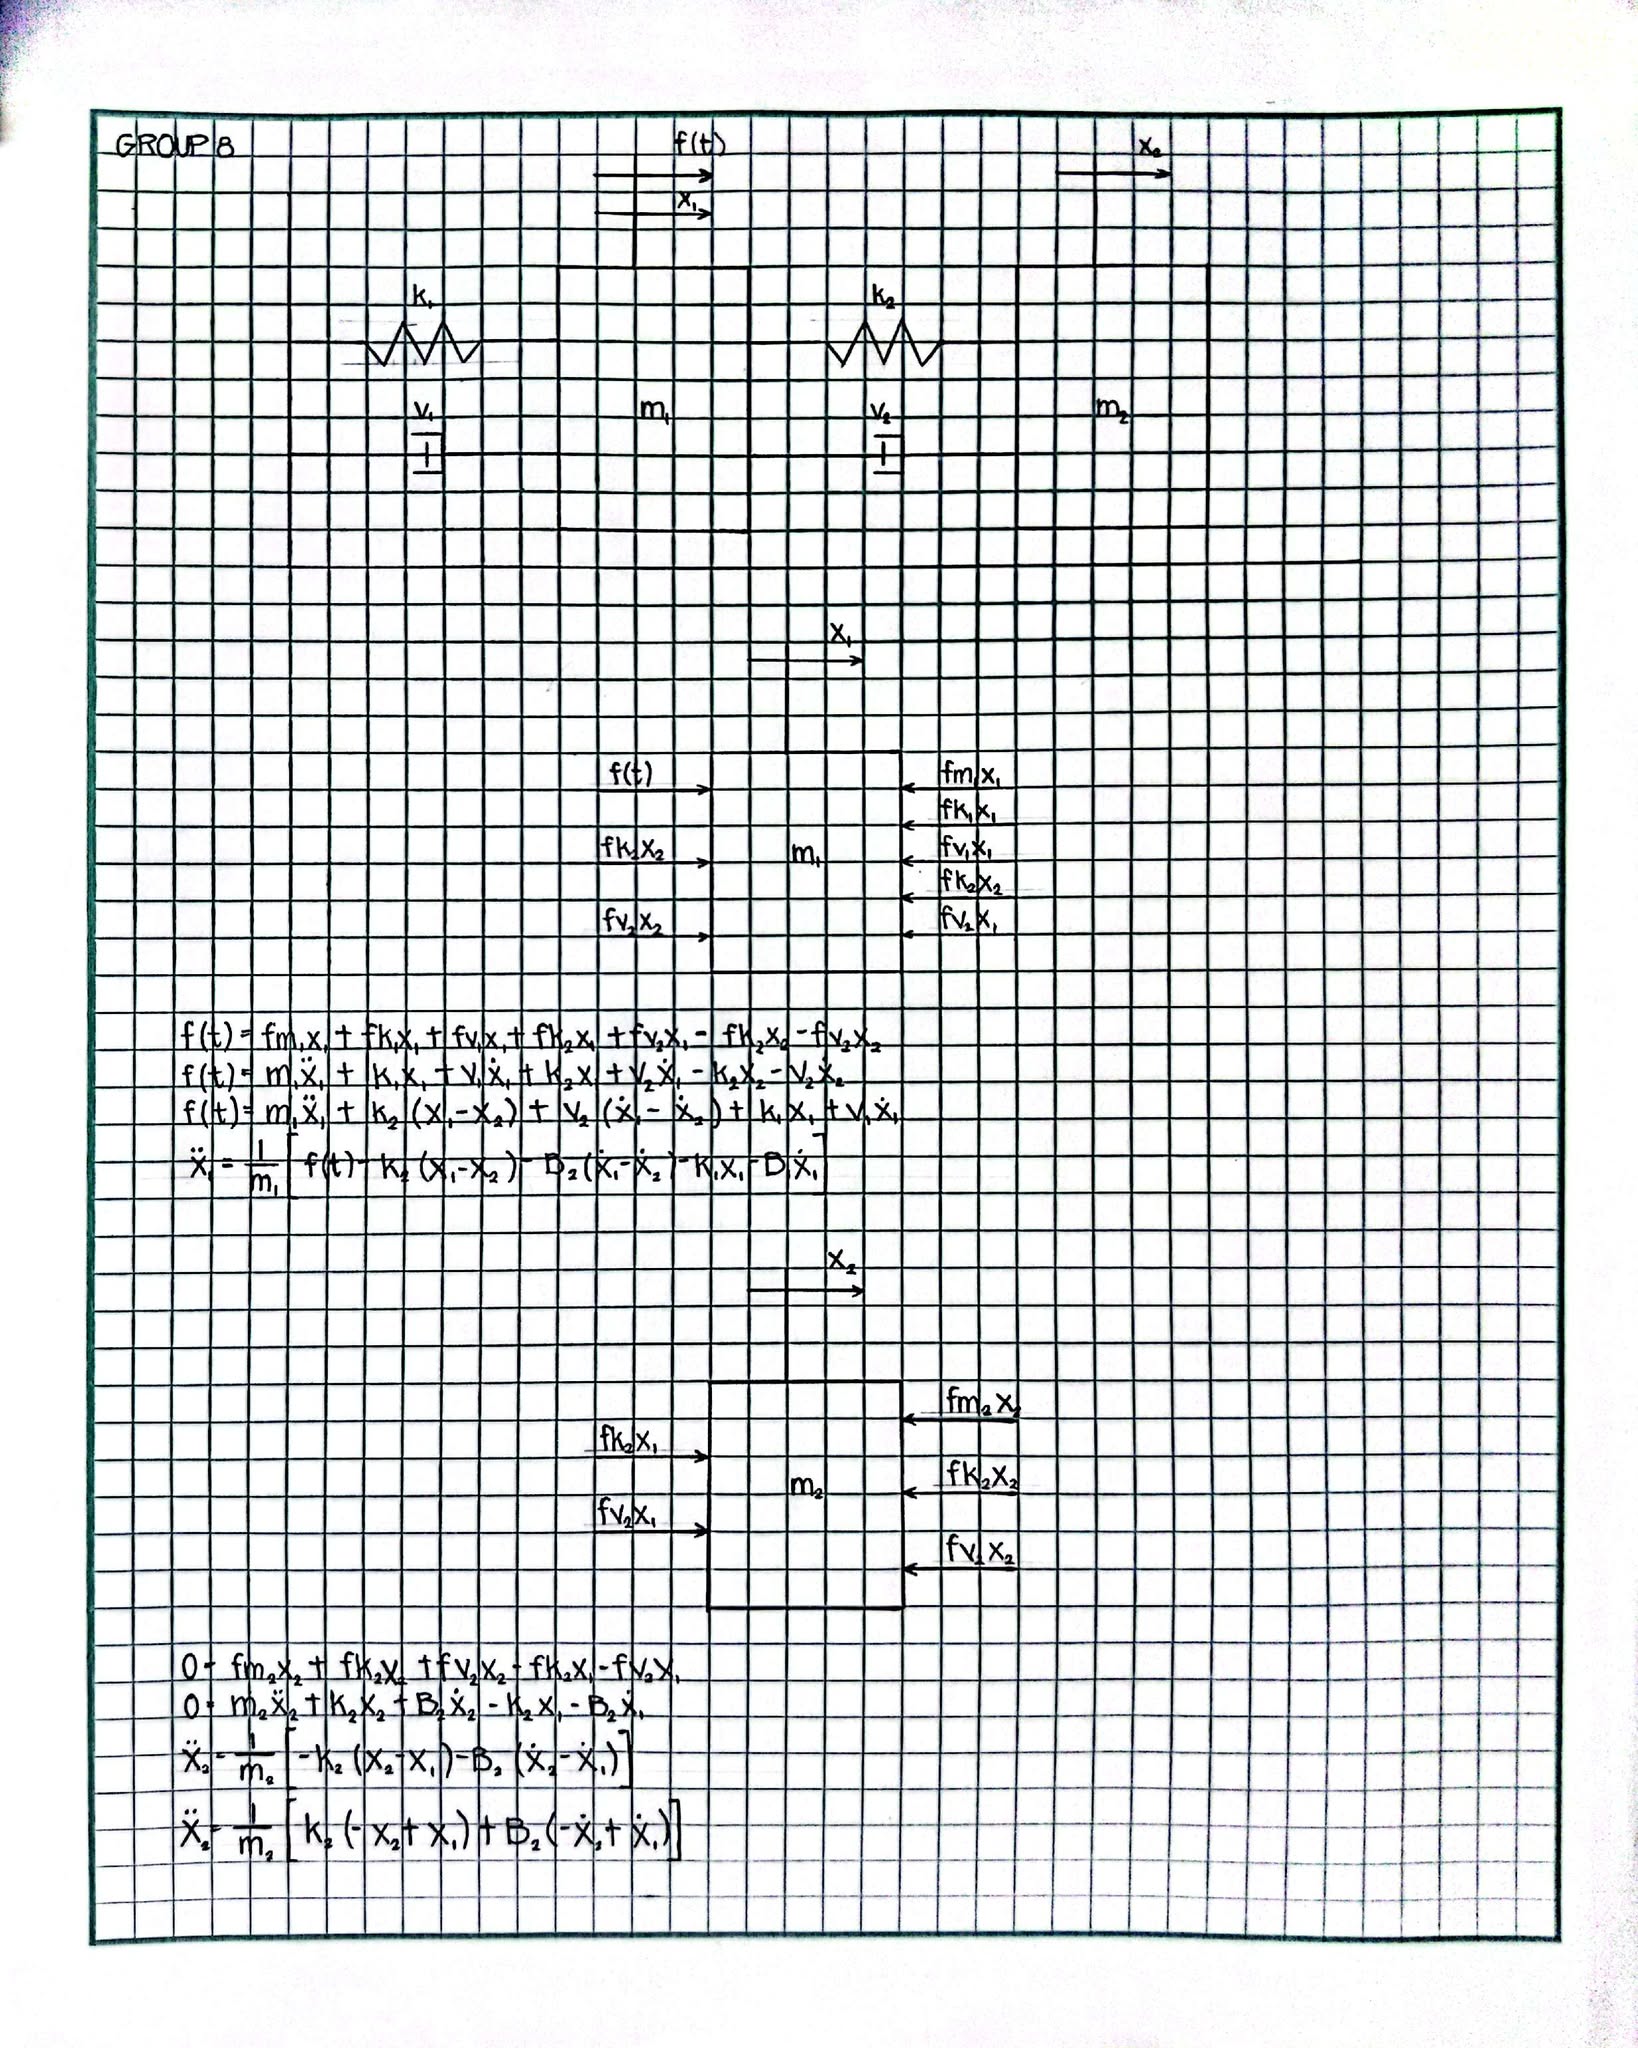 GROUP 8
f(t)
x₂
x₁
k₁
k₂
v₁
m₁
v₂
m₂
x₁
f(t)
fm₁x₁
fk₁x₁
fk₂x₂
m₁
fv₁x₁
fk₂x₂
fv₂x₂
fv₂x₁
f(t) = fm₁x₁ + fk₁x₁ + fv₁x₁ + fk₂x₁ + fv₂x₁ - fk₂x₂ - fv₂x₂
f(t) = m₁ẍ₁ + k₁x₁ + v₁ẋ₁ + k₂x₁ + v₂ẋ₁ - k₂x₂ - v₂ẋ₂
f(t) = m₁ẍ₁ + k₂(x₁-x₂) + v₂(ẋ₁-ẋ₂) + k₁x₁ + v₁ẋ₁
ẍ₁ = 1/m₁ [f(t) - k₂(x₁-x₂) - B₂(ẋ₁-ẋ₂) - k₁x₁ - B₁ẋ₁]
x₂
fm₂x₂
fk₂x₁
fk₂x₂
m₂
fv₂x₁
fv₂x₂
0 = fm₂x₂ + fk₂x₂ + fv₂x₂ - fk₂x₁ - fv₂x₁
0 = m₂ẍ₂ + k₂x₂ + B₂ẋ₂ - k₂x₁ - B₂ẋ₁
ẍ₂ = 1/m₂ [-k₂(x₂-x₁) - B₂(ẋ₂-ẋ₁)]
ẍ₂ = 1/m₂ [k₂(-x₂+x₁) + B₂(-ẋ₂+ẋ₁)]